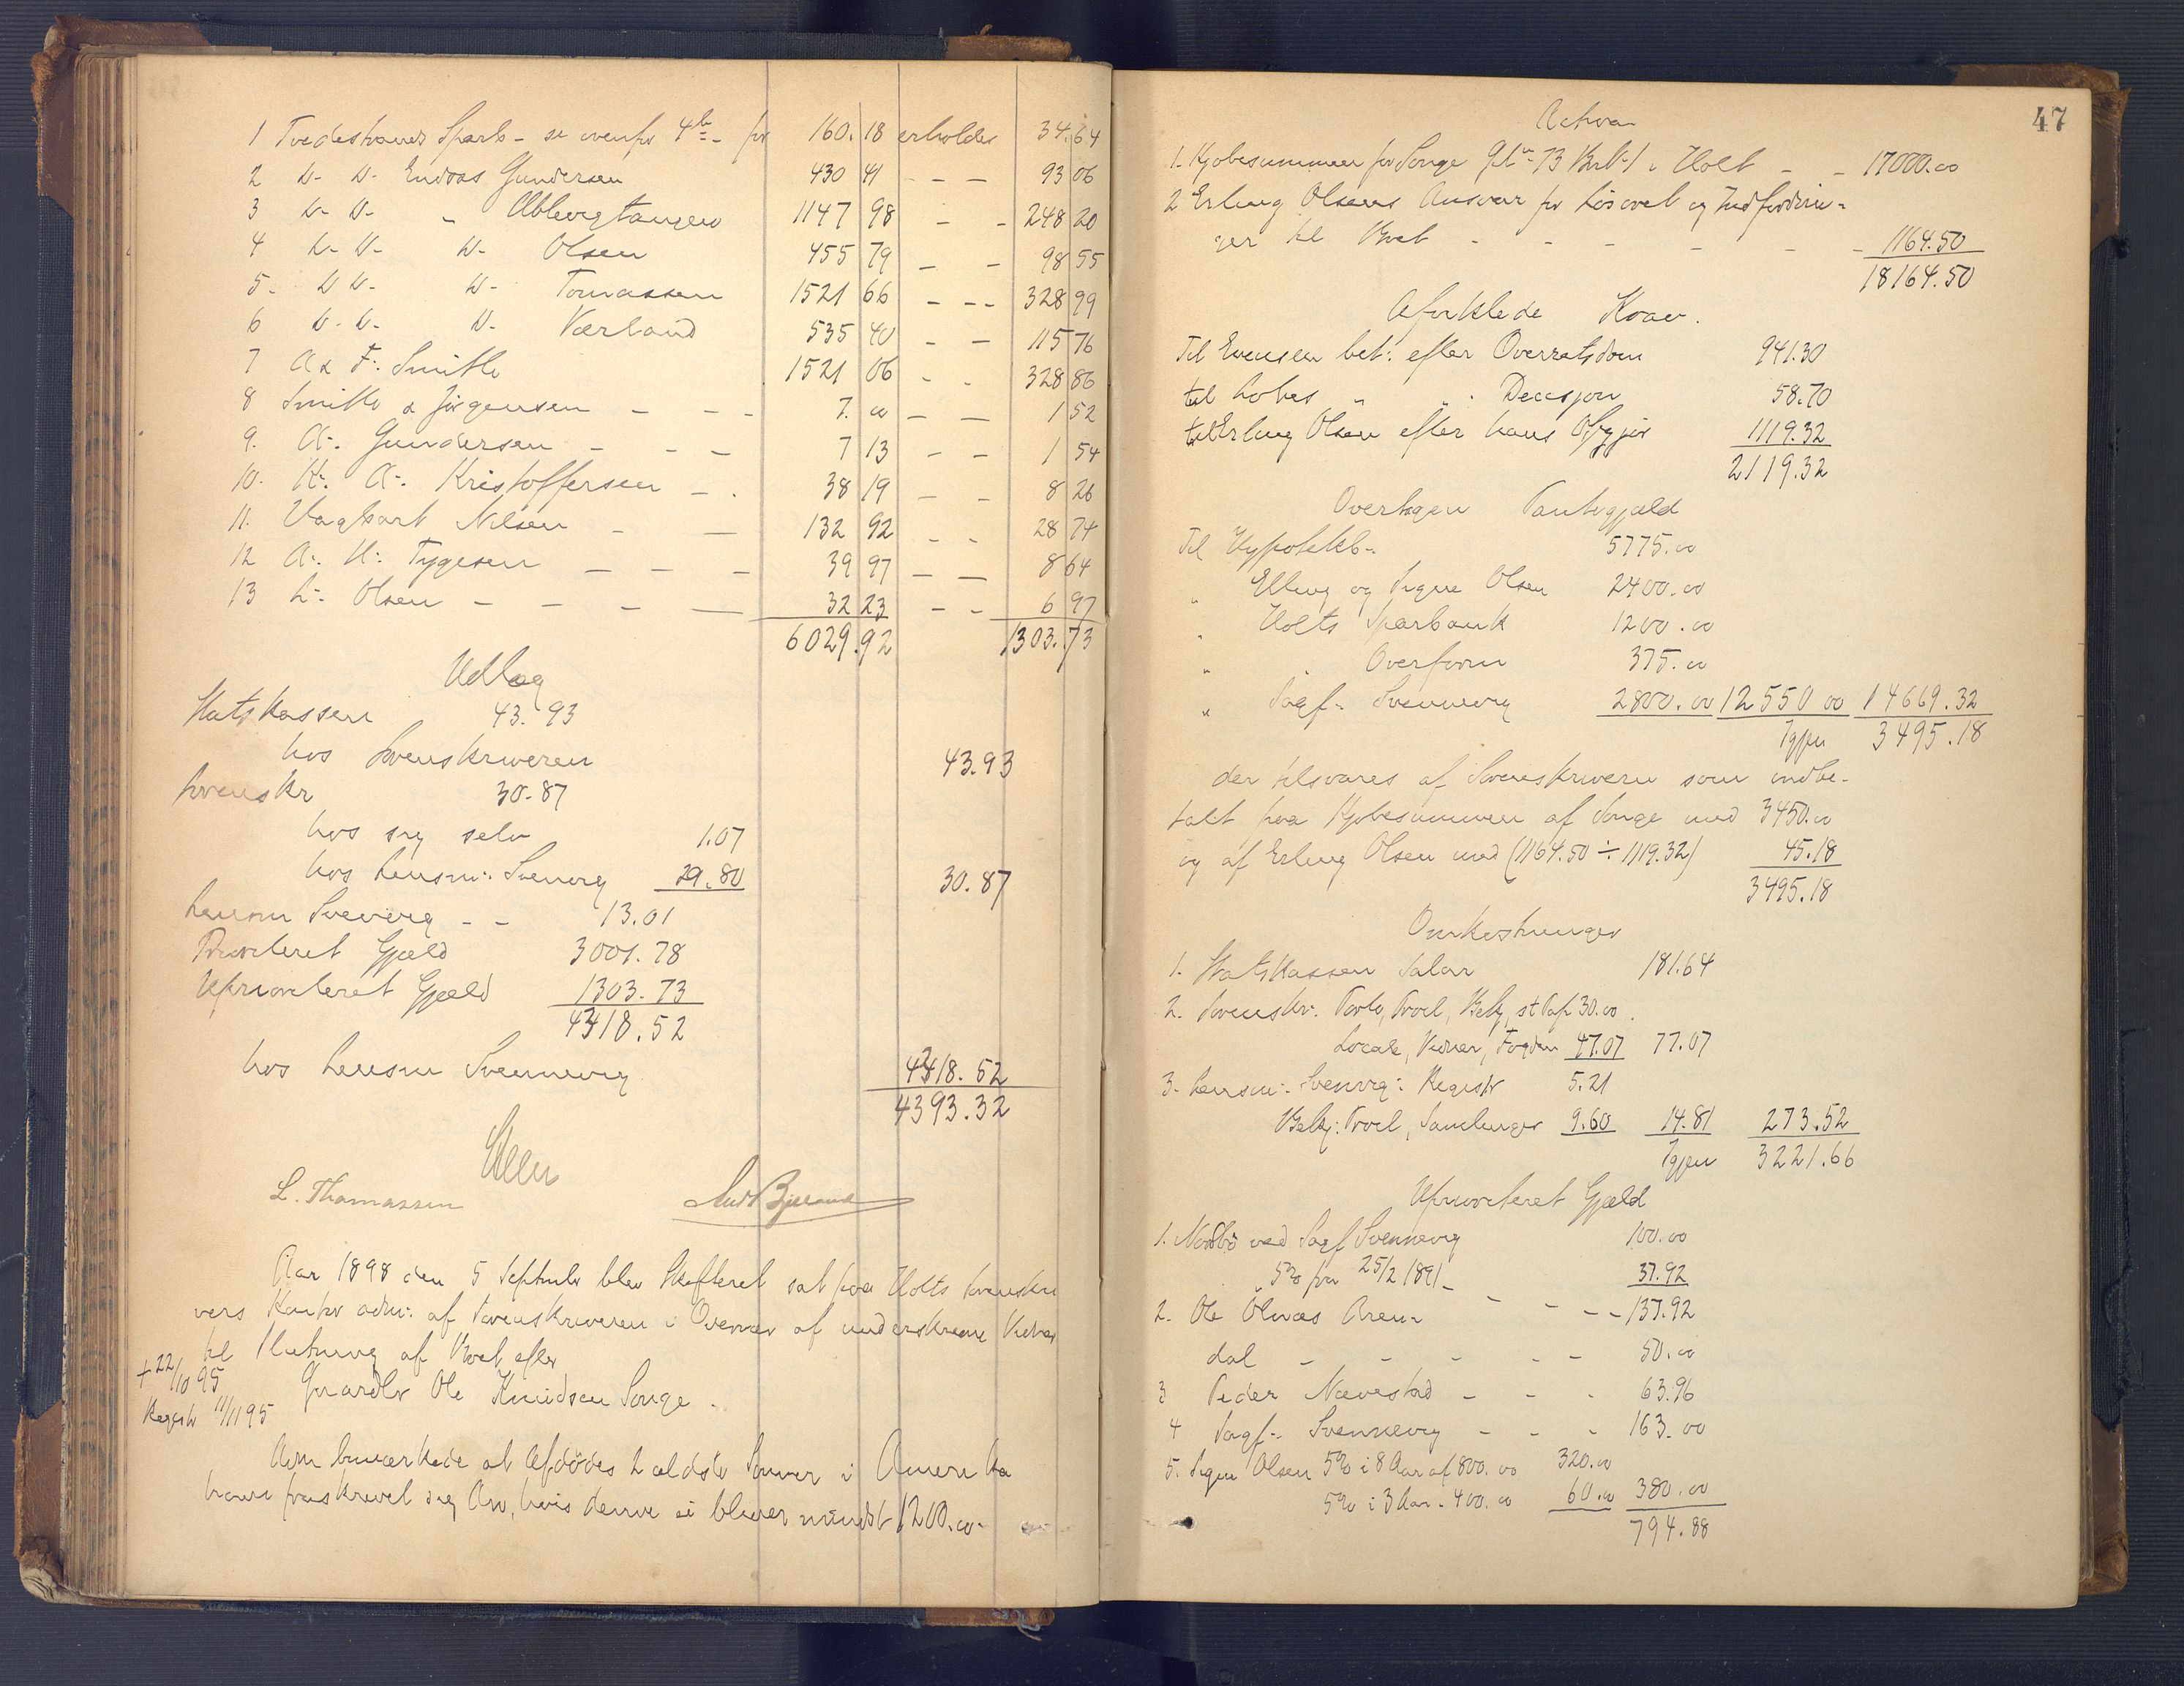 1 Tvedestrands Sparb - se ovenfor 4 b - for 160.18 erholder 34.64
2 D- D- Endors Gundersen 430 41 - - 93 06
3 D- D- - 1147 98 - - 248 20
4 D- D- D- Olsen 455 79 - - 98 55
5. D D- D- Tomassen 1521 66 - - - 328 99
6 D- D- D- Værland 535 40 - - 115 76
7 A & F. Smith 1521 06 - - 328 86
8 Smith & Jørgensen - - - 7. 00 - - 1 52
9. A. Gundersen - - - 7 13 - - 1 54
10. K. A. Kristoffersen - . 38 19 - - 8 26
11. Dagbart Nilsen - - 132 92 - - 28 74
12 A. H. Tygesen - - - 39 97 - - 8 64
13 L. Olsen - - - - 32 23 - - 6 97
6029.92 1303.73
Udlæg
Statskassen 43.93
hos Sorenskriveren 43.93
Sorenskr 30.87
hos sig selv 1.07
hos Lensm. Svenevig 29.80 30.87
Lensm Svenevig - - 13.01
Prioriteret Gjæld 3001.78
Uprioriteret Gjæld 1303.73
4318.52
hos Lensm Svennevig 4318.52
4393.32
L. Thomassen
Aar 1898 den 5 Septmbr blev Skifteret sat paa Holts Sorenskri
vers Kontor adm: af Sorenskriveren i Overvær af underskrevne Vidner
til Slutning af Boet efter
+ 22/10 95 Gaardbr Ole Knudsen Songe.
Registr 11/11 95
Adm bemærkede at Afdødes 2 ældste Sønner i Amerika
have fraskrevet sig Arv, hvis denne ei bliver mindst 1200.00-
47
Activa
1. Kjøbesummen for Songe G.No 73 BrNo 1 i Holt - - 17000.00
2 Erling Olsens Ansvar for Løsøret og Indfordrin-
ger til Boet - - - - - - 1164.50
18164.50
Afviklede Krav.
Til Evensen bet: efter Overretsdom 941.30
til Lobes " " Decisjon 58.70
til Erling Olsen efter hans Opgjør 1119.32
2119.32
Overtagen Pantegjæld
Til Hypotekb- 5775.00
" Elling og Signe Olsen 2400.00
" Holts Sparbank 1200.00
" " Overform 375.00
" Sagf. Svennevig 2800.00 12550 00 14669.32
Igjen 3495.18
der tilsvares af Sorenskriveren som indbe-
talt paa Kjøbesummen af Songe med 3450.00
og af Erling Olsen med (1164.50 ÷ 1119.32) 45.18
3495.18
Omkostninger
1. Statskassen Salær 181.64
2. Sorenskr. Porto, Procl, Bekj, st Pap 30.00.
Locale, Vidner, Fogden 47.07 77.07
3. Lensm. Svenvig: Registr 5.21
Bekj: Procl, Samlinger 9.60 14.81 273.52
Igjen 3221.66
Uprioriteret Gjæld
1. ved Sagf Svennevig 100.00
5% fra 25/2 1891 - 37.92
- - - - 137.92
2. Ole Ølnæs Aren-
dal - - - - - 50.00
3 Peder Nævestad - - - 63.96
4 Sagf. Svennevig - - - 163.00
5. Signe Olsen 5% i 8 Aar af 800.00 320.00
5% i 3 Aar - 400.00 60.00 380.00
794.88